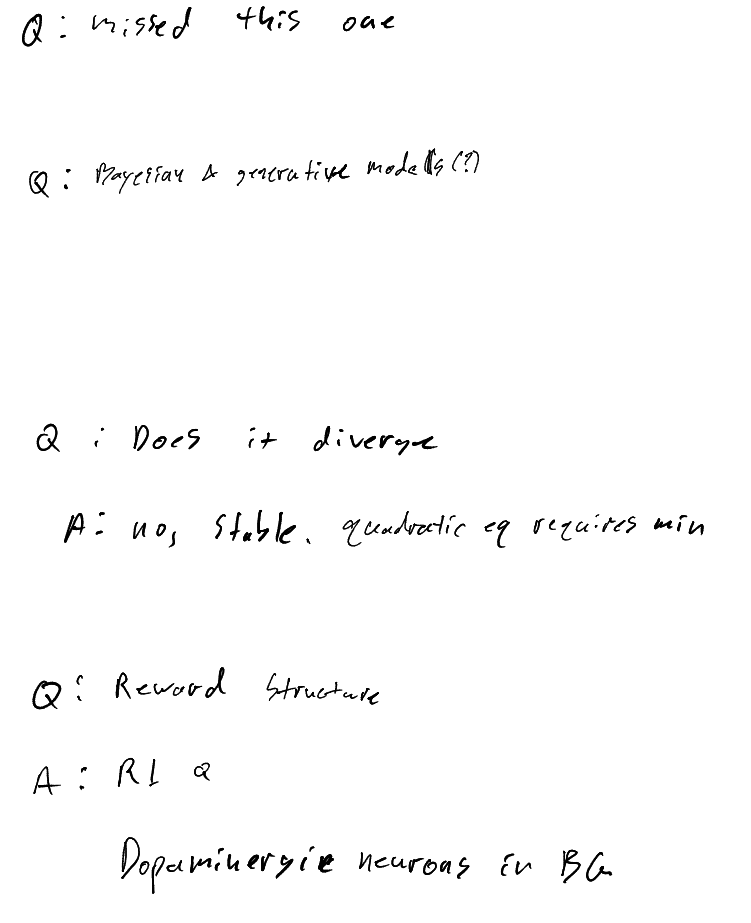 Q: missed this one
Q: Bayesian & generative models(?)
Q: Does it diverge
A: no, stable. quadratic eq requires min
Q: Reward structure
A: RL Q
Dopaminergic neurons in BG